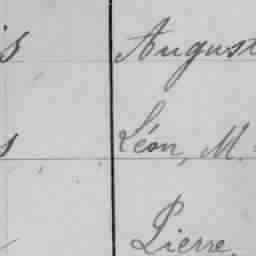 August
Léon, M.
Pierre